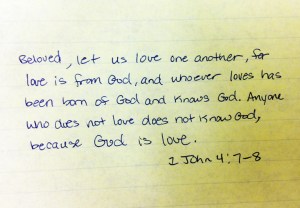 Beloved, let us love one another, for
love is from God, and whoever loves has
been born of God and knows God. Anyone
who does not love does not know God,
because God is love.
1 John 4:7-8